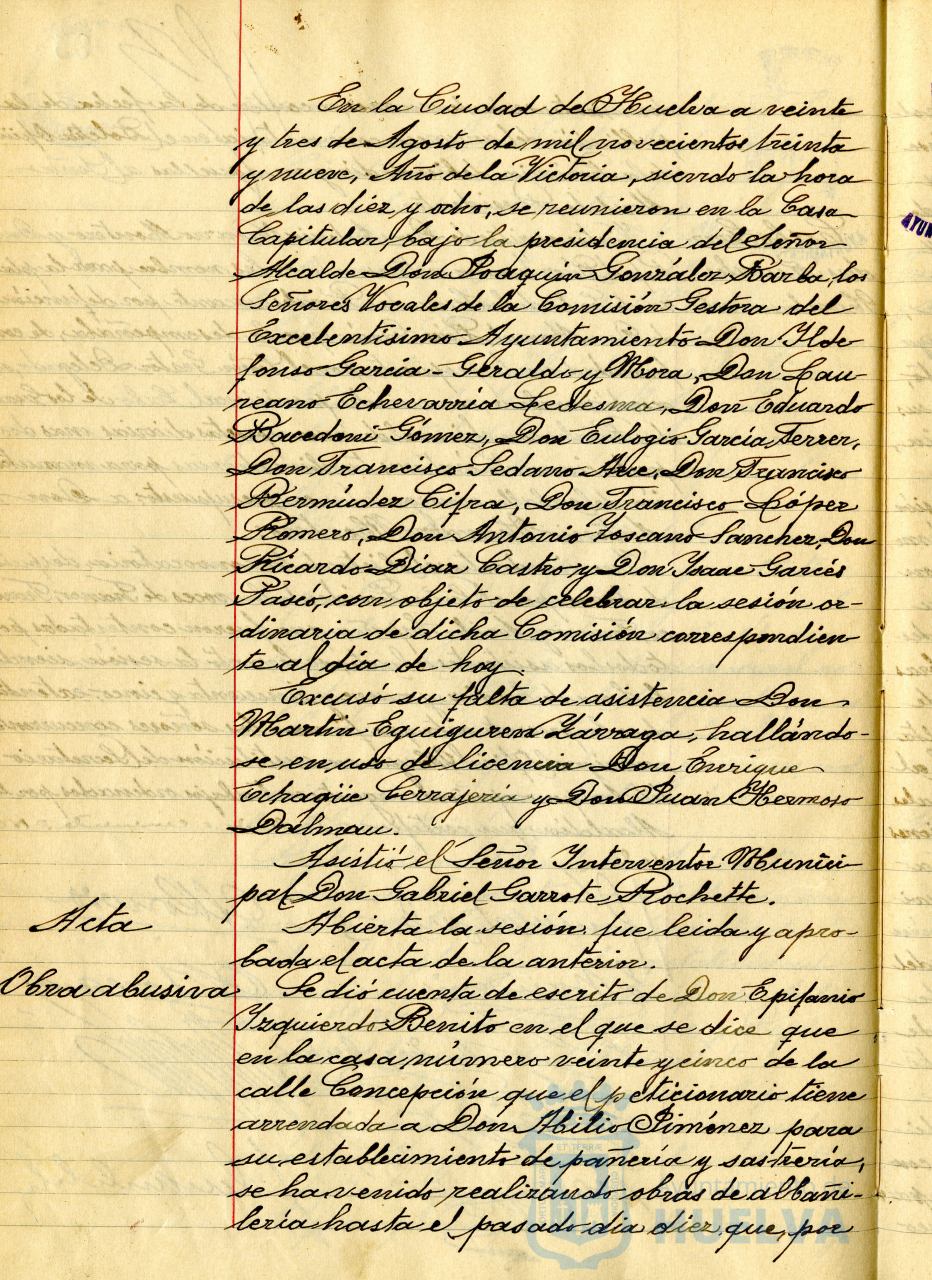 En la Ciudad de Huelva a veinte
y tres de Agosto de mil novecientos treinta
y nueve, Año de la Victoria, siendo la hora
de las diéz y ocho, se reunieron en la Casa
Capitular, bajo la presidencia del Señor
Alcalde Don Joaquin González Barba, los
Señores Vocales de la Comisión Gestora del
Excelentisimo Ayuntamiento Don Ilde
fonso Garcia-Geraldo y Mora, Don Lau-
reano Echevarria Ledesma, Don Eduardo
Bacedoni Gómez, Don Eulogio García Ferrer,
Don Francisco Sedano Arce, Don Francisco
Bermúdez Cifra, Don Francisco López
Romero, Don Antonio Toscano Sanchez, Don
Ricardo Diaz Castro y Don Isaac Garcés
Paseó, con objeto de celebrar la sesión or-
dinaria de dicha Comisión correspondien
te al dia de hoy.
Excusó su falta de asistencia Don
Martin Eguiguren Zárraga, hallándo-
se en uso de licencia Don Enrique
Echagüe Cerrajeria y Don Juan Hermoso
Dalmau.
Asistió el Señor Interventor Munici
pal Don Gabriel Garrote Rochette.
Acta
Abierta la sesión fue leida y apro-
bada el acta de la anterior.
Obra abusiva
Se dió cuenta de escrito de Don Epifanio
Izquierdo Benito en el que se dice que
en la casa número veinte y cinco de la
calle Concepción que el peticionario tiene
arrendada a Don Abilio Jiménez para
su establecimiento de pañería y sastrería,
se ha venido realizando obras de albañi-
lería hasta el pasado dia diez que, por
Ayuntamiento de
HUELVA
AYUN